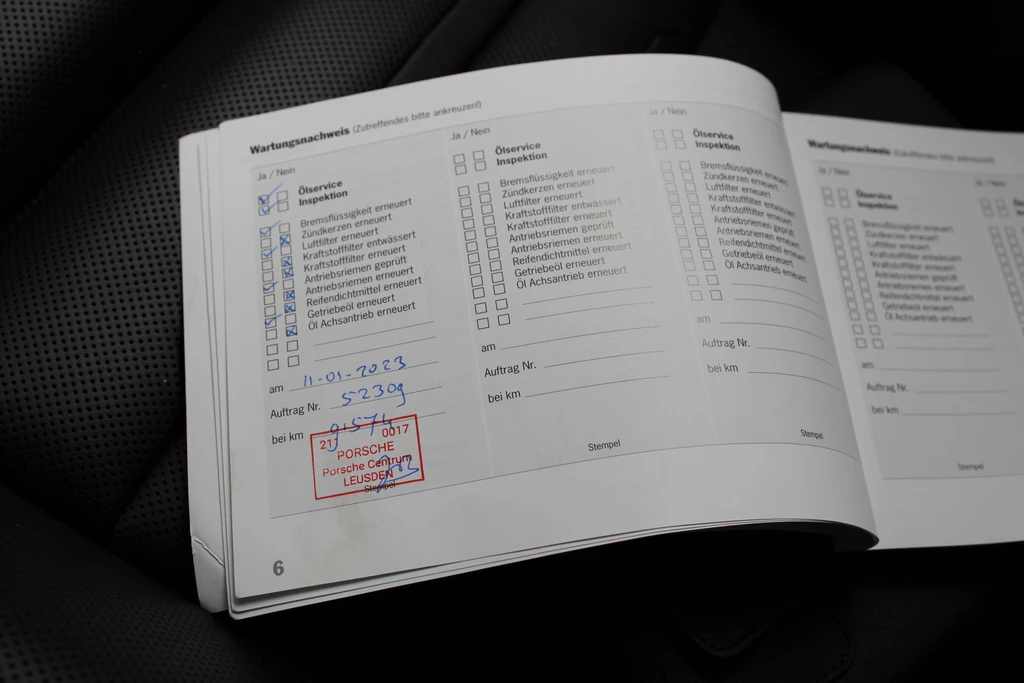 Wartungsnachweis (Zutreffendes bitte ankreuzen!)
Ja / Nein
Ölservice
Inspektion
Bremsflüssigkeit erneuert
Zündkerzen erneuert
Luftfilter erneuert
Kraftstofffilter entwässert
Kraftstofffilter erneuert
Antriebsriemen geprüft
Antriebsriemen erneuert
Reifendichtmittel erneuert
Getriebeöl erneuert
Öl Achsantrieb erneuert
am 11-01-2023
Auftrag Nr. 52309
bei km 91574
211 0017
PORSCHE
Porsche Centrum
LEUSDEN
Stempel
6
Ja / Nein
Ölservice
Inspektion
Bremsflüssigkeit erneuert
Zündkerzen erneuert
Luftfilter erneuert
Kraftstofffilter entwässert
Kraftstofffilter erneuert
Antriebsriemen geprüft
Antriebsriemen erneuert
Reifendichtmittel erneuert
Getriebeöl erneuert
Öl Achsantrieb erneuert
am
Auftrag Nr.
bei km
Stempel
Ja / Nein
Ölservice
Inspektion
Bremsflüssigkeit erneuert
Zündkerzen erneuert
Luftfilter erneuert
Kraftstofffilter entwässert
Kraftstofffilter erneuert
Antriebsriemen geprüft
Antriebsriemen erneuert
Reifendichtmittel erneuert
Getriebeöl erneuert
Öl Achsantrieb erneuert
am
Auftrag Nr.
bei km
Stempel
Wartungsnachweis (Zutreffendes bitte ankreuzen!)
Ja / Nein
Ölservice
Inspektion
Bremsflüssigkeit erneuert
Zündkerzen erneuert
Luftfilter erneuert
Kraftstofffilter entwässert
Kraftstofffilter erneuert
Antriebsriemen geprüft
Antriebsriemen erneuert
Reifendichtmittel erneuert
Getriebeöl erneuert
Öl Achsantrieb erneuert
am
Auftrag Nr.
bei km
Stempel
Ja / Nein